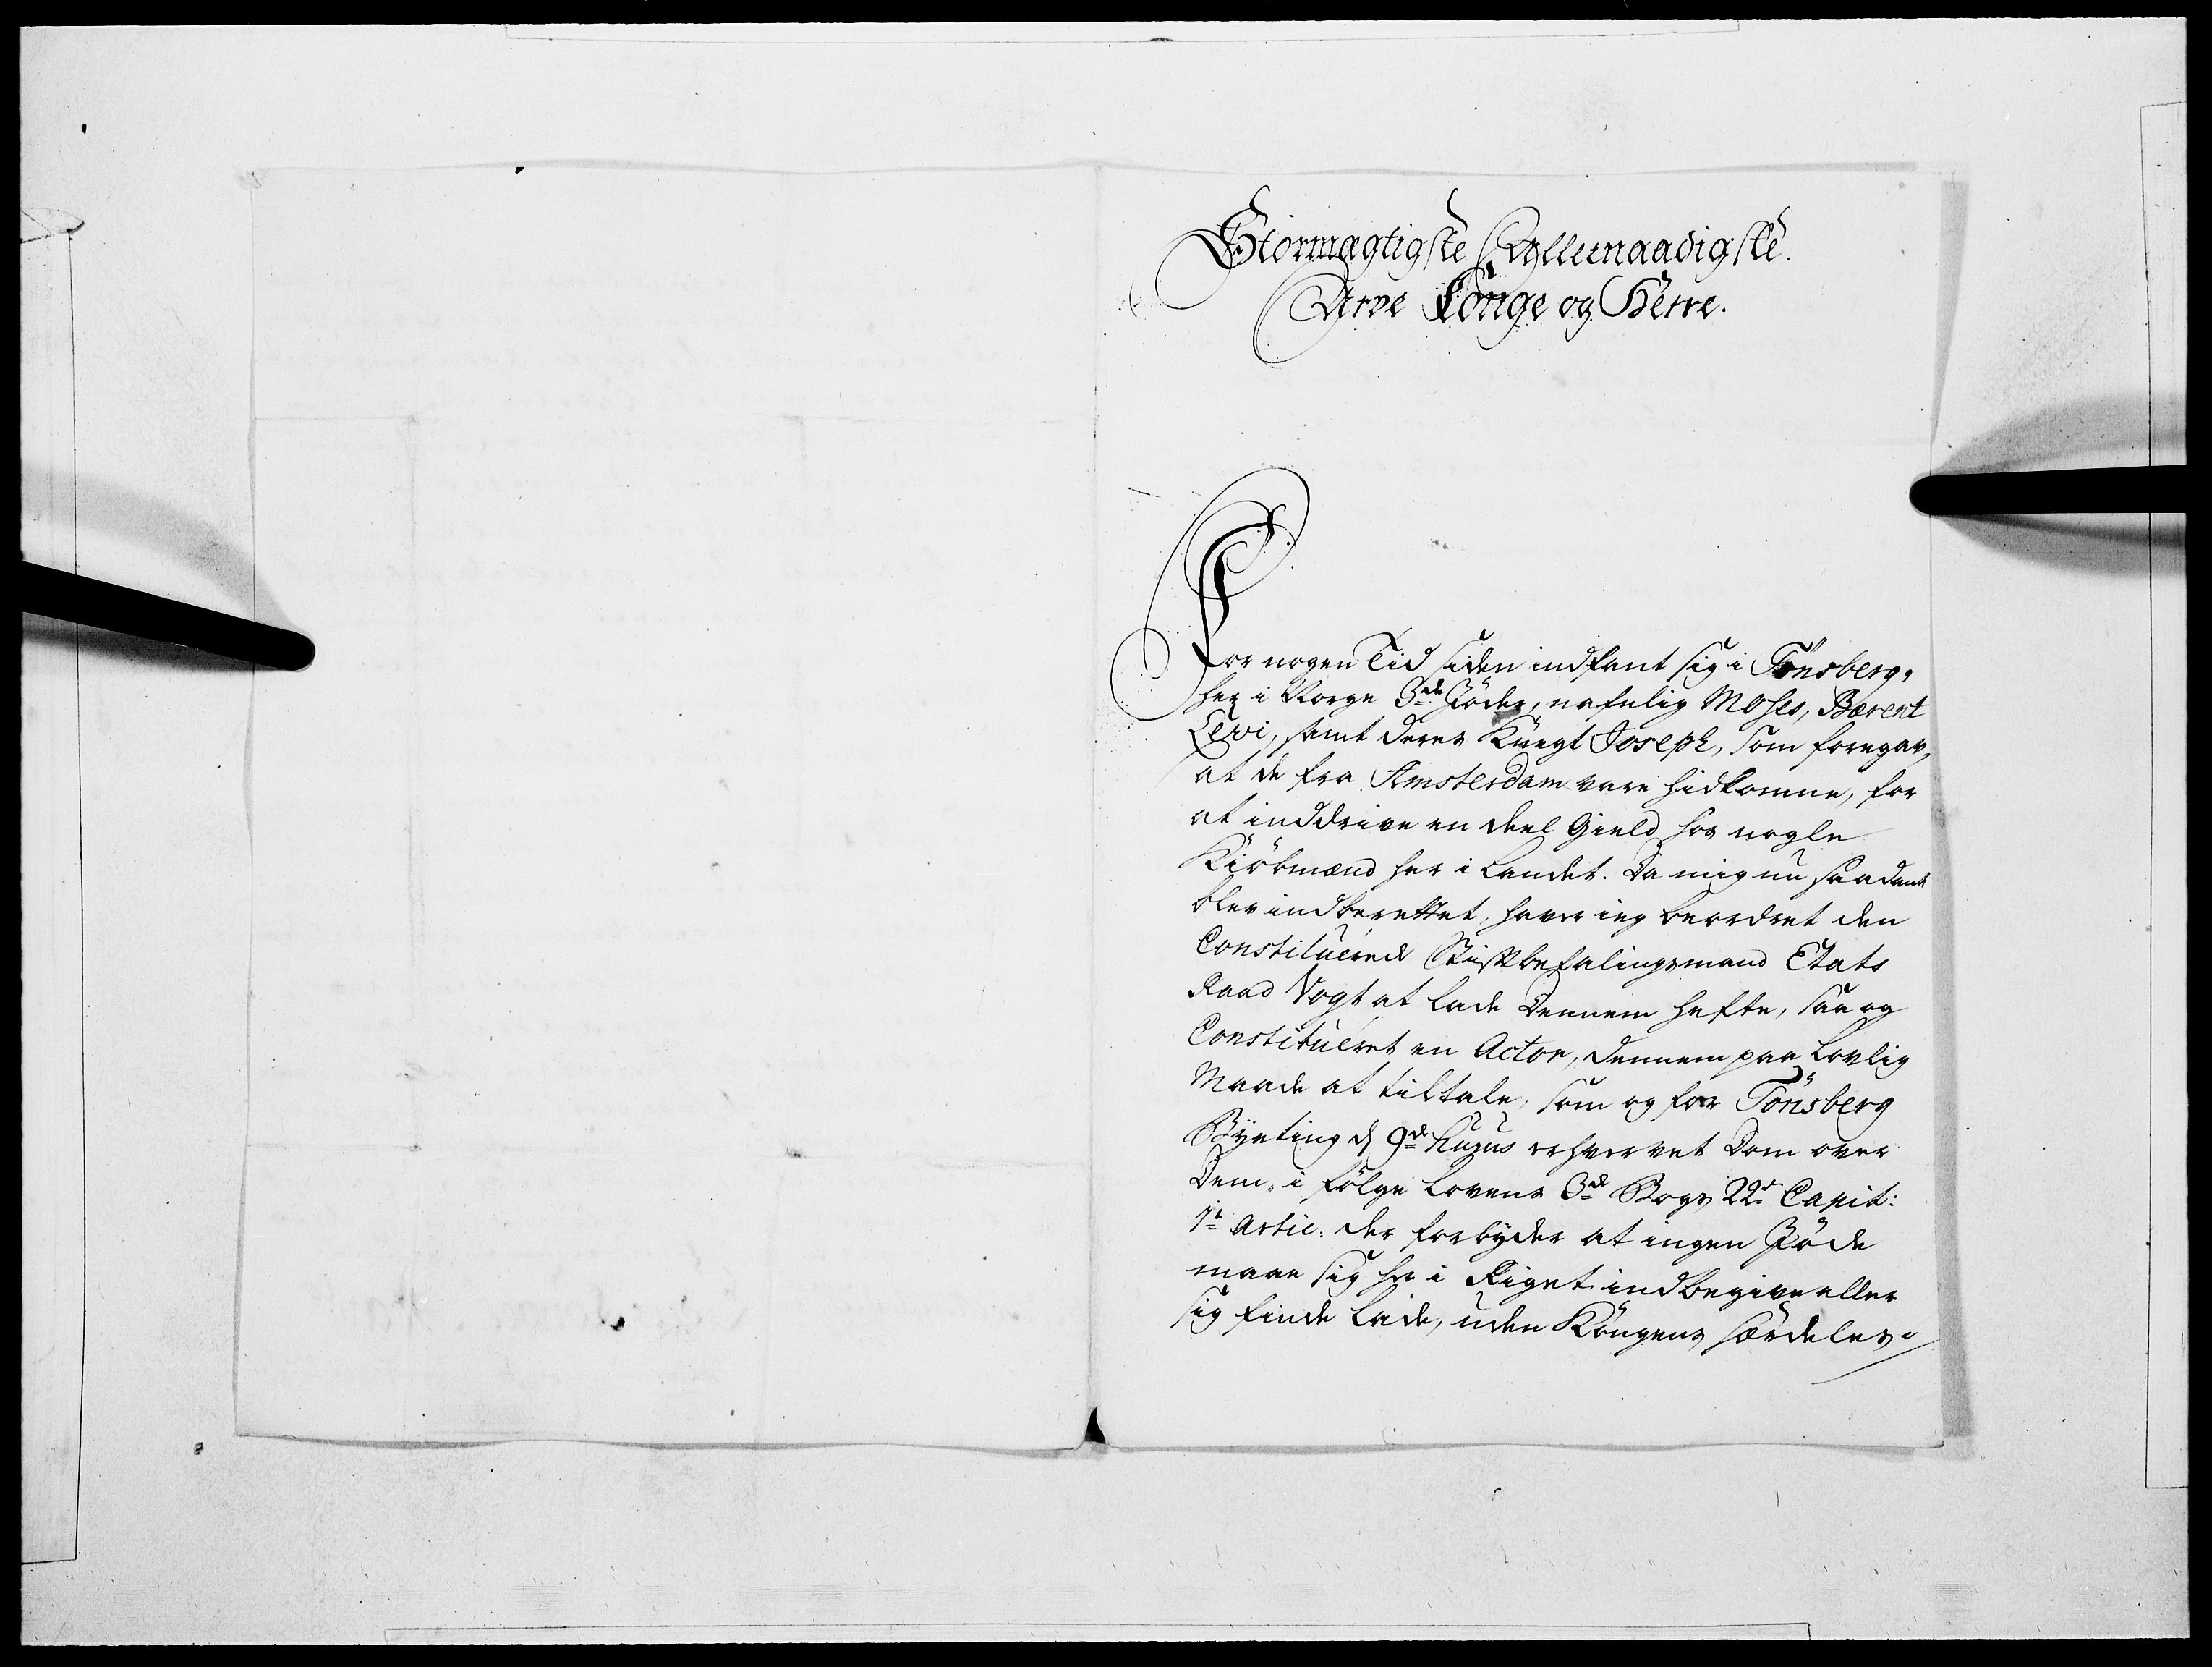 Stormægtigste Allernaadigste.
Arve Konge og Herre.
For nogen Tid siden indfant sig i Tönsberg,
her i Norge 3de Jöder, nafnlig Moses, Bærent
Levi, samt deres Knegt Joseph, som foregav,
at de fra Amsterdam vare hidkomne, for
at inddrive en deel Gield hos nogle
Kiöbmænd her i Landet. Da mig nu saadant
blev indberettet, haver ieg beordret den
Constituerede Stiftbefalingsmand Etats
Raad Vogt at lade Dennem hefte, saa og
Constitueret en Actor, dennem paa Lovlig
Maade at tiltale, som og for Tönsberg
Byeting d 9de hujus erhvervet Dom over
Dem, i fölge Lovens 3de Bogs 22d Capit:
1t Artic: der forbyder at ingen Jöde
maae sig her i Riget indbegive eller
sig finde lade, uden Kongens særdeles